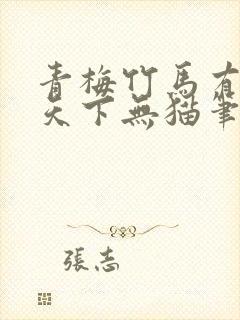 青梅竹馬有
天下無貓筆
張志